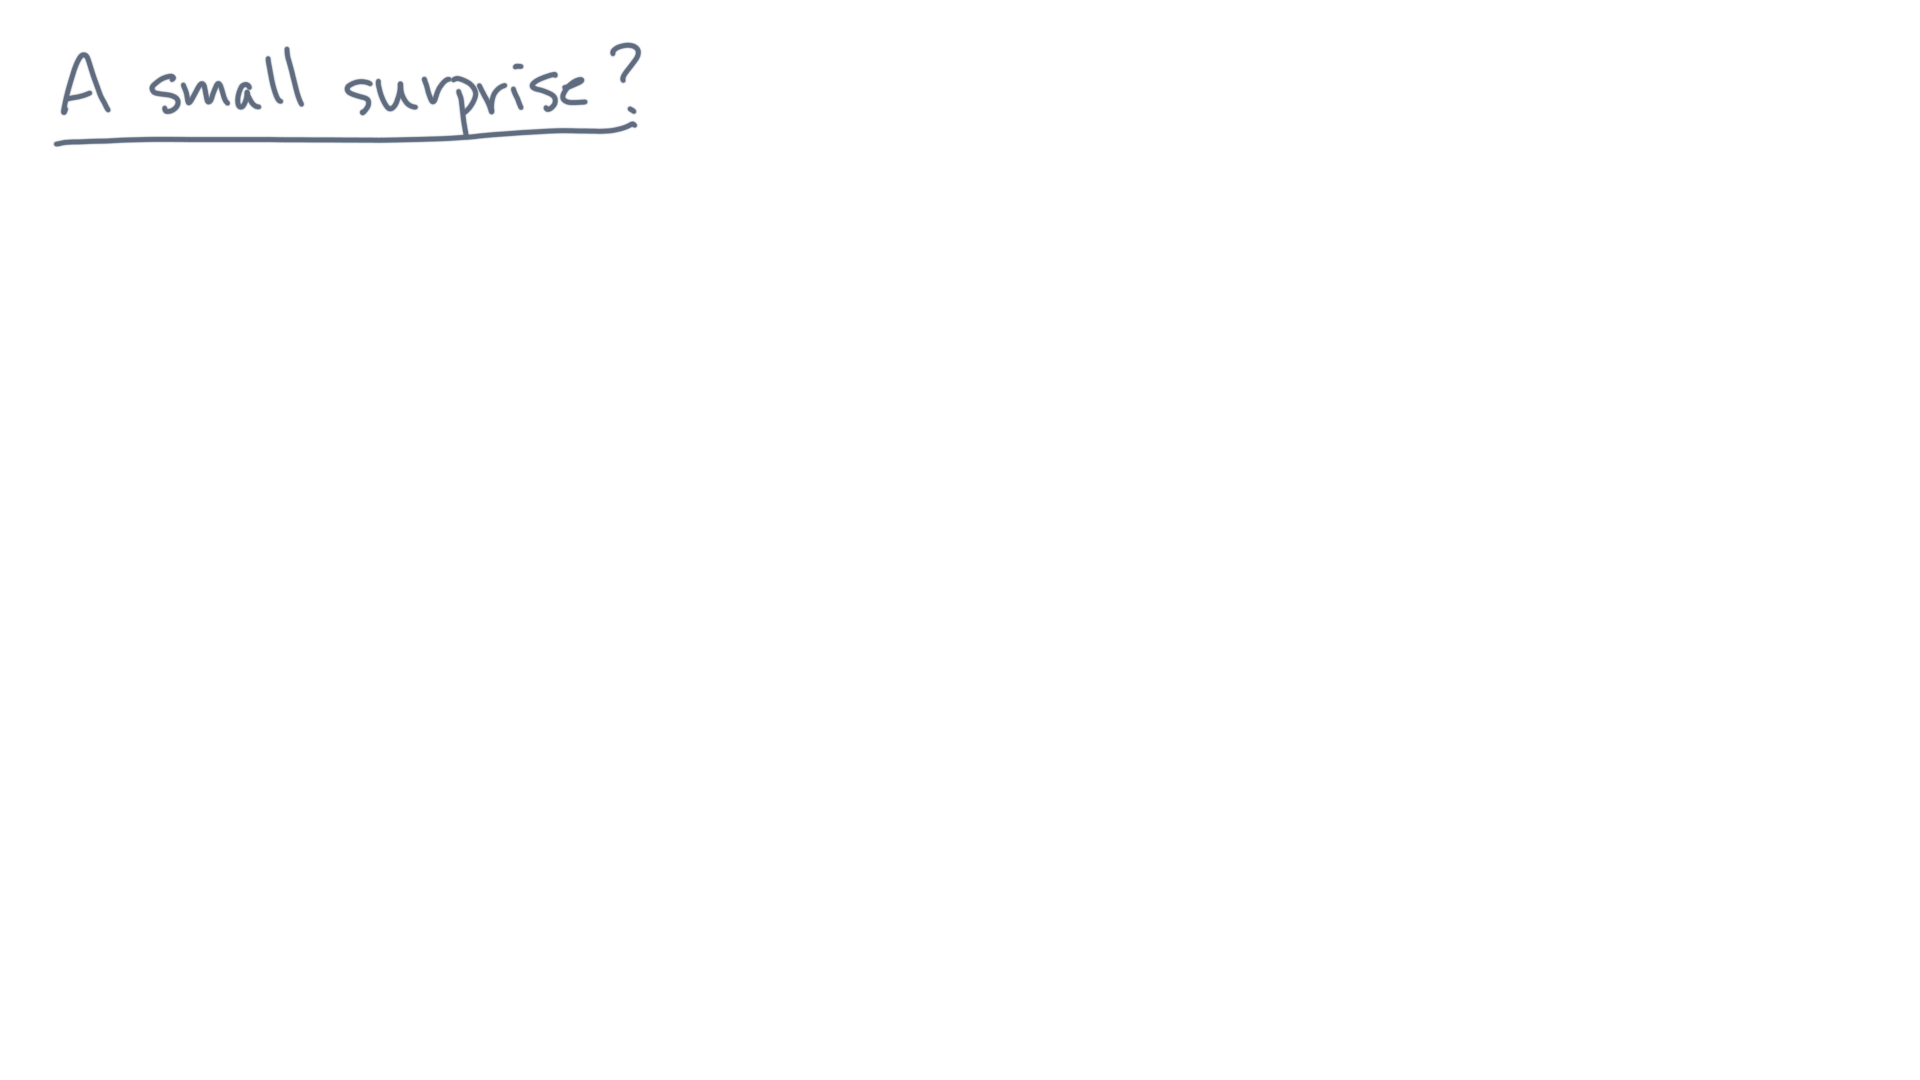 A small surprise?